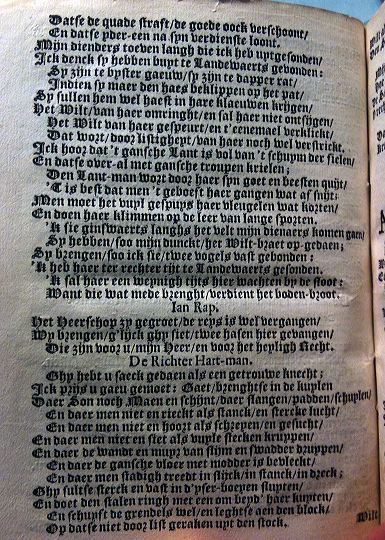 Datse de quade straft/ de goede oock verschoont/
En datse yder-een na syn verdienste loont.
Mijn dienders toeven langh die ick heb uytgesonden/
Ick denck sy hebben buyt te Landewaerts gevonden:
Sy zijn te byster gaeuw/ sy zijn te dapper rat/
Indien sy maer den haes beklippen op het pat/
Sy sullen hem wel haest in hare klaeuwen krijgen/
Het Wilt/ van haer omringht/ en sal haer niet ontsijgen/
Het Wilt van haer gespeurt/ en t'eenemael verklickt/
Dat wort/ door listigheyt/ van haer noch wel verstrickt.
Ick hoor dat 't gansche Lant is vol van 't schuym der fielen/
En datse over-al met gansche troupen krielen;
Den Lant-man wort door haer syn goet en beesten quijt/
'T is best dat men 't geboeft haer gangen wat af snijt;
Men moet het vuyl gespuys haer vleugelen wat korten/
En doen haer klimmen op de leer van lange sporten.
'k sie ginswaerts langhs het velt mijn dienaers komen gaen/
Sy hebben/ soo mijn dunckt/ het Wilt-braet op gedaen;
Sy brengen/ soo ick sie/ twee vogels vast gebonden:
'k heb haer ter rechter tijt te Landewaerts gesonden.
'k sal haer een weynigh tijts hier wachten by de stoet:
Want die wat mede brenght/ verdient het boden-broot.
Ian Rap.
Het Heerschop zy gegroet/ de reys is wel vergangen/
Wy brengen/ g'lijck ghy siet/ twee hasen hier gevangen/
Die zijn voor u/ mijn Heer/ en voor het heyligh Recht.
De Richter Hart-man.
Ghy hebt u saeck gedaen als een getrouwe knecht;
Ick prijs u gaeu gemoet: Gaet/ brenghtse in de kuplen
Daer Son noch Maen en schijnt/ daer slangen/ padden/ schuplen/
En daer men niet en rieckt als stanck/ en stercke lucht/
En daer men niet en hoort als schreyen/ en gesucht/
En daer men niet en siet als vuyle stecken kruppen/
En daer de wandt en muyr van slijm en swadder druppen/
En daer de gansche vloer met modder is bevleckt/
En daer men stadigh treedt in slijck/ in stanck/ in dreck;
Ghy sultse sterck en vast in d'yser-boeyen sluyten/
En doet den stalen ringh met een om beyd' haer kuyten/
En schuyft de grendels wel/ en leghtse aen den block/
Op datse niet door list geraken uyt den stock.
Wilt